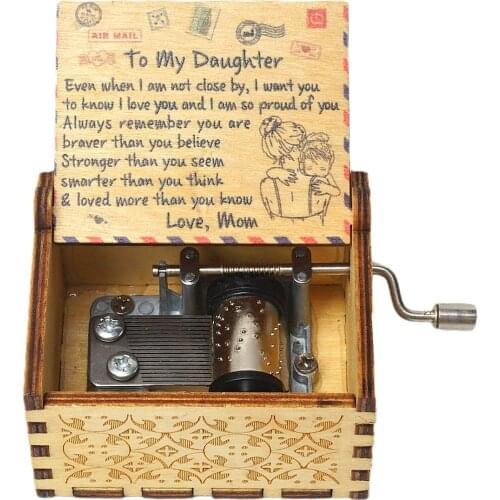 AIR MAIL
To My Daughter
Even when I am not close by, I want you
to know I love you and I am so proud of you
Always remember you are
braver than you believe
Stronger than you seem
smarter than you think
& loved more than you know
Love, Mom